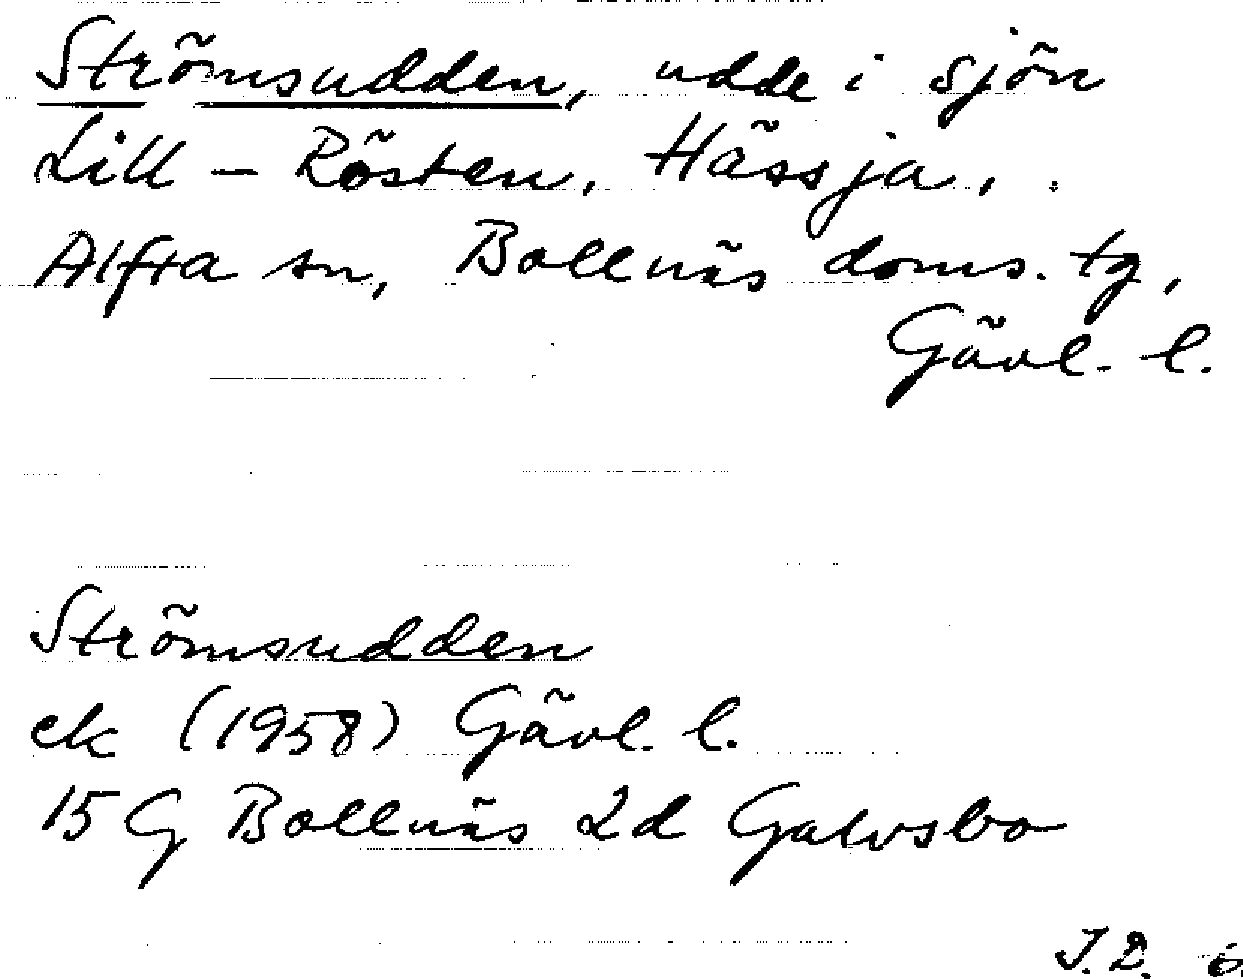 Strömsudden, udde i sjön
Lill-Rösten, Hässja,
Alfta sn, Bollnäs doms. tg,
Gävl. l.
Strömsudden
ek (1958) Gävl. l.
15 G Bollnäs 2d Galvsbo
J.D.